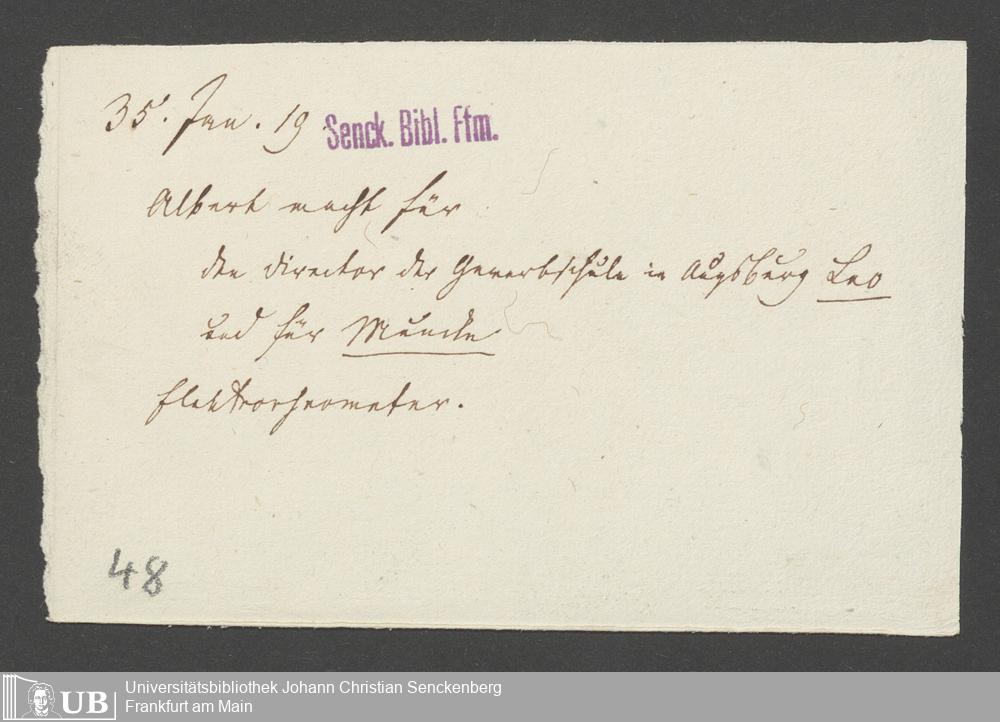 35. Jan. 19
Senck. Bibl. Ffm.
Albert macht für
den Director der Gewerbschule in Augsburg Leo
und für Muncke
Elektrorheometer.
48
UB
Universitätsbibliothek Johann Christian Senckenberg
Frankfurt am Main